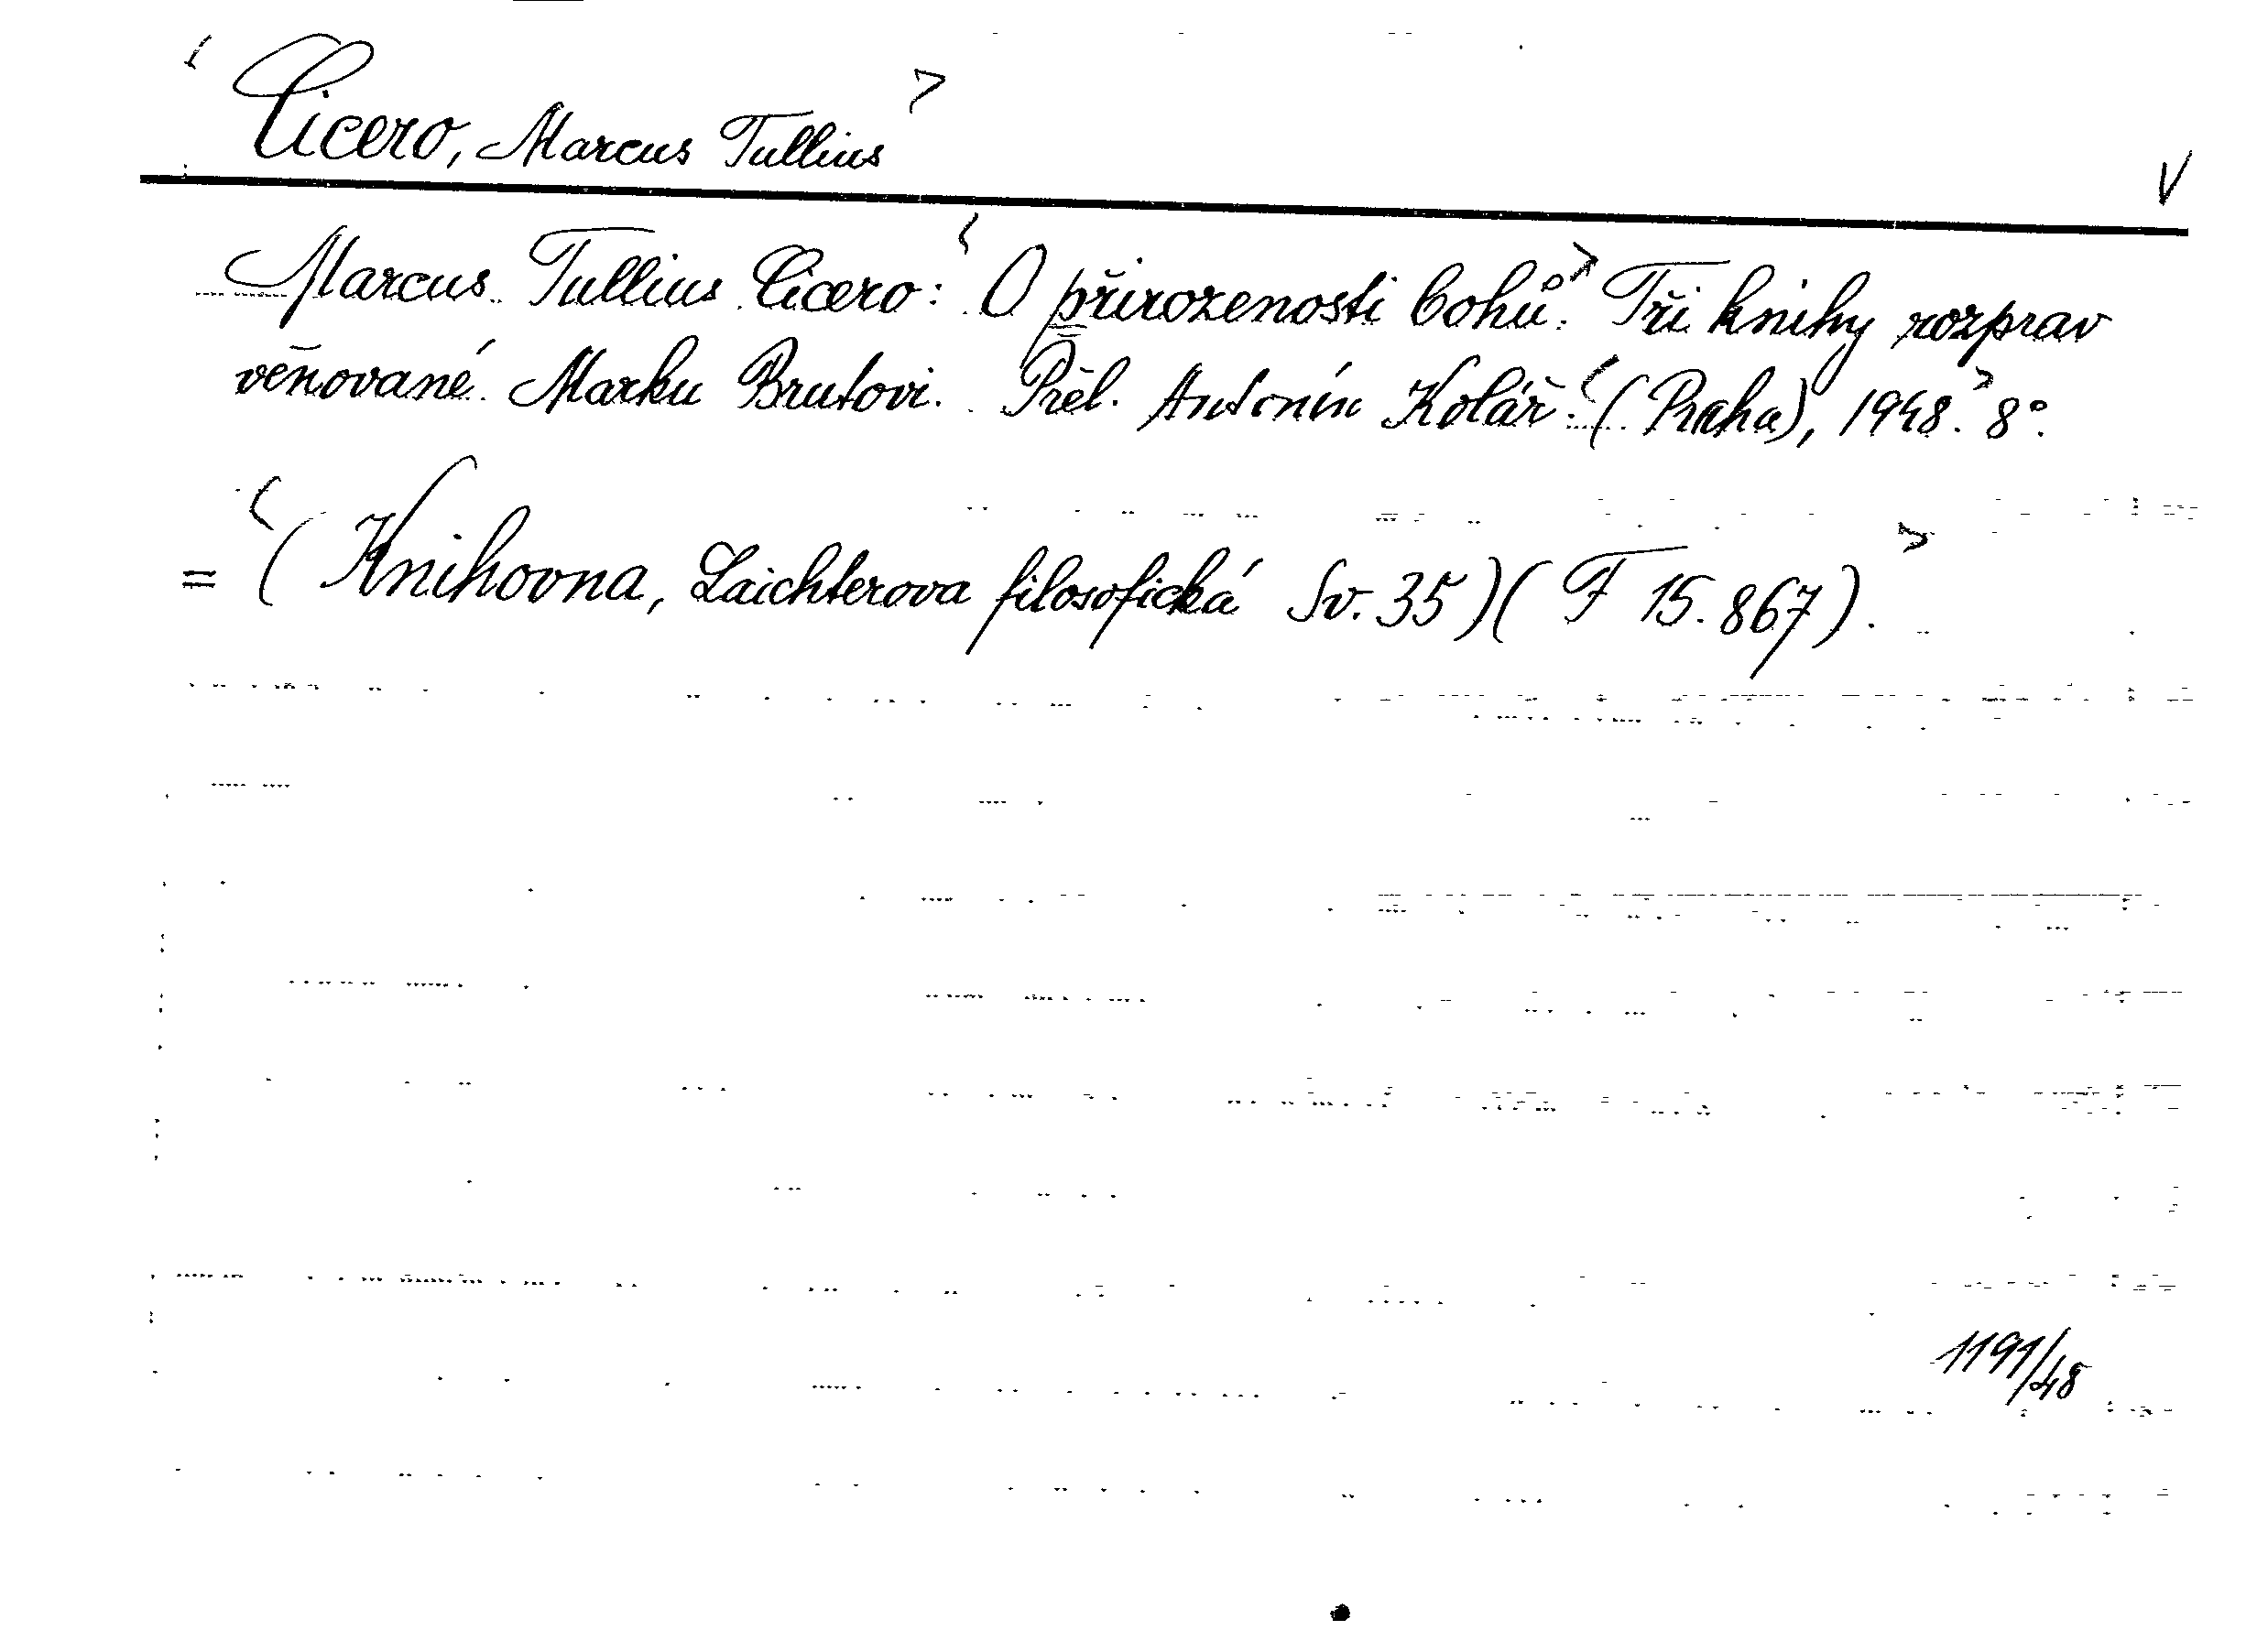 < Cicero, Marcus Tullius >
V
Marcus Tullius Cicero: < O přirozenosti bohů. > Tři knihy rozprav
věnované Marku Brutovi. Přel. Antonín Kolář. < (Praha), 1948. > 8°.
= < (Knihovna, Laichterova filosofická Sv. 35) (F 15.867). >
1191/48